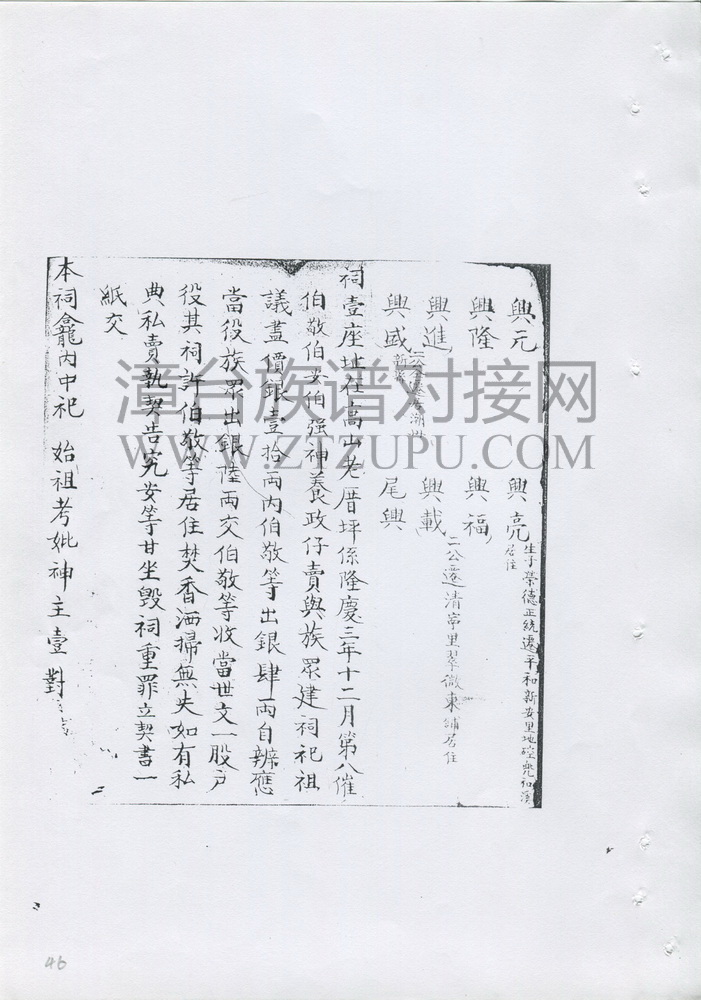 興元 興亮
生子榮德正統遷平和新安里地
居住
興隆 興福
二公遷清寧里翠微東鋪居住
興進 興載
二公
潮州
興盛 尾興
祠壹座址在高山老厝坪係隆慶三年十二月第八催
伯敬伯安伯强神養政仔賣與族眾建祠祀祖
議盡價銀壹拾兩內伯敬等出銀肆兩自辨應
當役族眾出銀陸兩交伯敬等收當世文一股戶
役其祠許伯敬等居住焚香洒掃無失如有私
典私賣執契告究安等甘坐毀祠重罪立契書一
紙交
本祠龕內中祀 始祖考妣神主壹對
漳台族谱对接网
WWW.ZTZUPU.COM
46